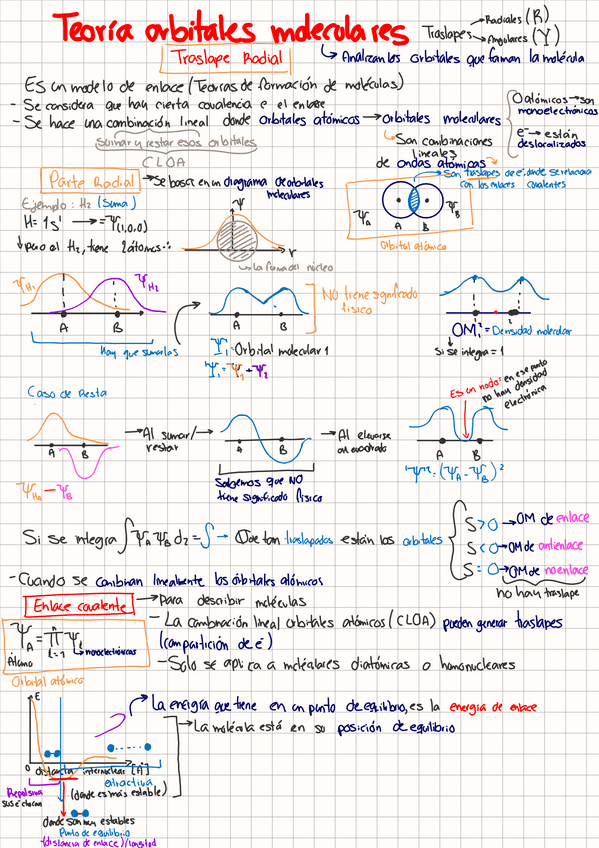 Teoría orbitales moleculares
Traslapes → Radiales (R)
→ Angulares (Y)
Traslape Radial
↳ Analizan los orbitales que forman la molécula
Es un modelo de enlace (Teorías de formación de moléculas)
- Se considera que hay cierta covalencia e el enlace
- Se hace una combinación lineal donde orbitales atómicos → Orbitales moleculares
O atómicos → son monoelectrónicos
e⁻ → están deslocalizados
Sumar y restar esos orbitales
CLOA
↳ Son combinaciones lineales
de ondas atómicas
Son traslapes de e⁻, donde se relaciona
con los enlaces covalentes
Parte Radial → Se basa en un diagrama de orbitales moleculares
Ejemplo: H₂ (Suma)
H = 1s¹ → = Ψ(1,0,0)
↓ pero el H₂, tiene 2 átomos ∴
Ψ
r
↳ La forma del núcleo
ΨA ΨB
A B
Orbital atómico
ΨH₁ ΨH₂
A B
Hay que sumarlas
A B
NO tiene significado
físico
Ψ₁: Orbital molecular 1
Ψ₁ = Ψ₁ + Ψ₂
A B
OM₁² = Densidad molecular
Si se integra = 1
Caso de Resta
A B
ΨHa − ΨB
→ Al sumar/
restar
A B
Sabemos que NO
tiene significado físico
→ Al elevarse
al cuadrado
Es un nodo: en ese punto
no hay densidad
electrónica
A B
"Ψ²": (ΨA − ΨB)²
Si se integra ∫ΨA ΨB dz = S → Que tan traslapados están los orbitales
S > 0 → OM de enlace
S < 0 → OM de antienlace
S = 0 → OM de no enlace
no hay traslape
- Cuando se combinan linealmente los orbitales atómicos
Enlace covalente → Para describir moléculas
- La combinación lineal orbitales atómicos (CLOA) pueden generar traslapes
(compartición de e⁻)
- Solo se aplica a moléculas diatómicas o homonucleares
ΨA = π Ψi
n
i=1 ↳ monoelectrónicas
Átomo
Orbital atómico
E
La energía que tiene en un punto de equilibrio, es la energía de enlace
→ La molécula está en su posición de equilibrio
0 distancia internuclear [Å]
Repulsiva
sus e⁻ chocan
atractiva
(donde es más estable)
donde son muy estables
Punto de equilibrio
(distancia de enlace)/longitud